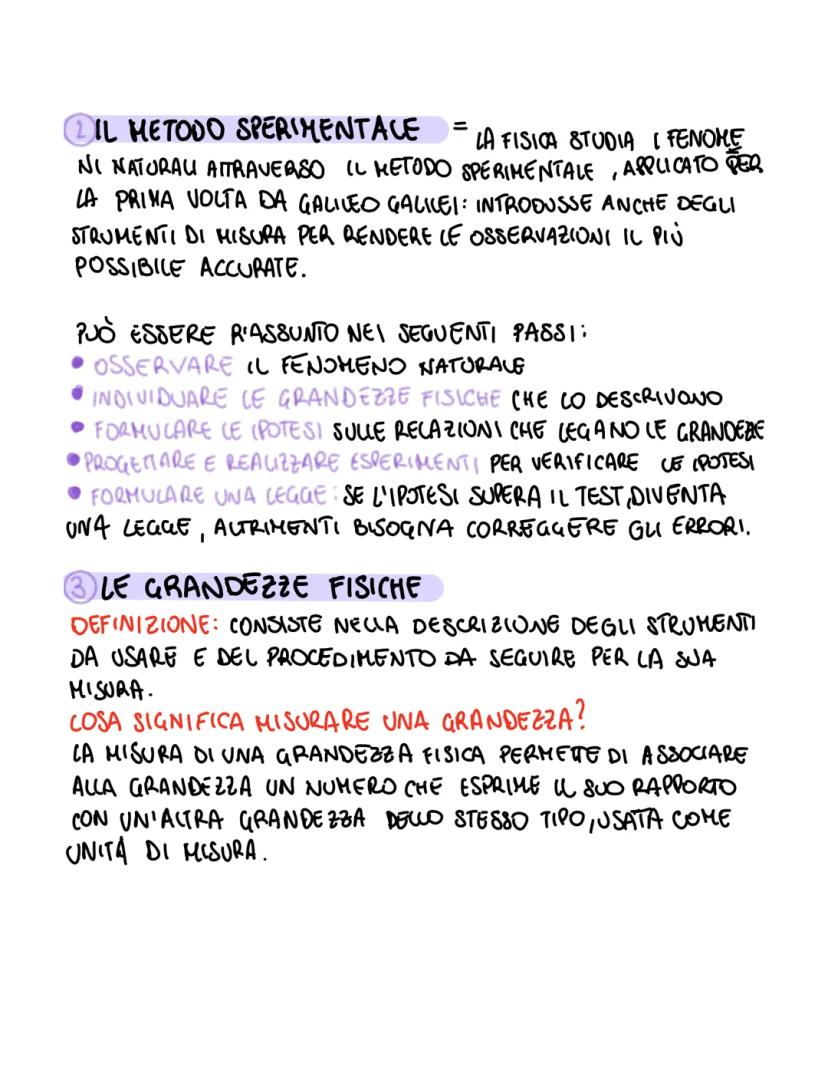 2 IL METODO SPERIMENTALE = LA FISICA STUDIA I FENOME
NI NATURALI ATTRAVERSO IL METODO SPERIMENTALE, APPLICATO PER
LA PRIMA VOLTA DA GALILEO GALILEI: INTRODUSSE ANCHE DEGLI
STRUMENTI DI MISURA PER RENDERE LE OSSERVAZIONI IL PIÙ
POSSIBILE ACCURATE.
PUÒ ESSERE RIASSUNTO NEI SEGUENTI PASSI:
• OSSERVARE IL FENOMENO NATURALE
• INDIVIDUARE LE GRANDEZZE FISICHE CHE LO DESCRIVONO
• FORMULARE LE IPOTESI SULLE RELAZIONI CHE LEGANO LE GRANDEZZE
• PROGETTARE E REALIZZARE ESPERIMENTI PER VERIFICARE LE IPOTESI
• FORMULARE UNA LEGGE: SE L'IPOTESI SUPERA IL TEST, DIVENTA
UNA LEGGE, ALTRIMENTI BISOGNA CORREGGERE GLI ERRORI.
3 LE GRANDEZZE FISICHE
DEFINIZIONE: CONSISTE NELLA DESCRIZIONE DEGLI STRUMENTI
DA USARE E DEL PROCEDIMENTO DA SEGUIRE PER LA SUA
MISURA.
COSA SIGNIFICA MISURARE UNA GRANDEZZA?
LA MISURA DI UNA GRANDEZZA FISICA PERMETTE DI ASSOCIARE
ALLA GRANDEZZA UN NUMERO CHE ESPRIME IL SUO RAPPORTO
CON UN'ALTRA GRANDEZZA DELLO STESSO TIPO, USATA COME
UNITÀ DI MISURA.